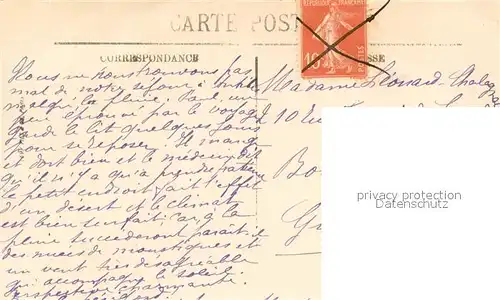 CARTE POST
REPUBLIQUE FRANÇAISE
10
POSTES
CORRESPONDANCE
SSE
Nous ne nous trouvons pas
mal de notre séjour à
malgré la pluie. Paul, un
peu éprouvé par le voyage
garde le lit quelques jours
pour se reposer. Il mange
et dort bien et le médecin dit
qu'il n'y a qu'à prendre patience
le petit endroit fait l'effet
d'un désert et le climat
est bien surfait, car à la
pluie succederont paraît-il
des nuées de moustiques et
un vent très désagréable
qui accompagne le soleil.
Perspective charmante.
Madame
10 Rue
Bo
G
privacy protection
Datenschutz